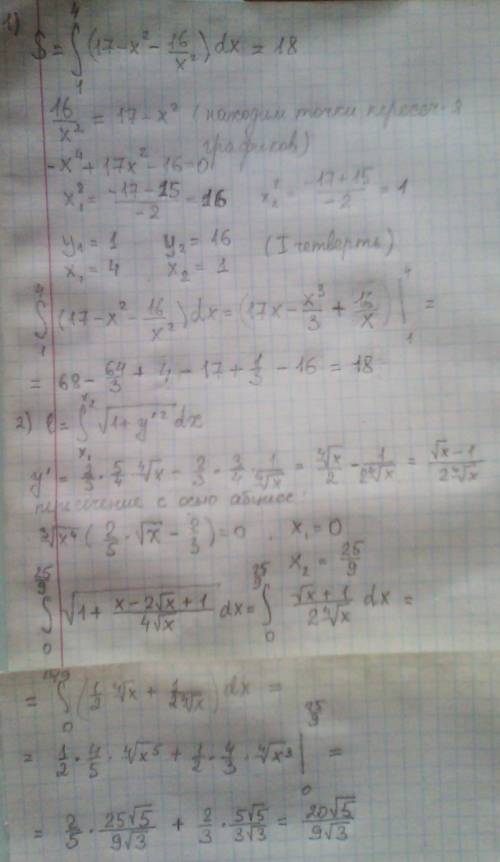 1) S = ∫₁⁴ (17 - x² - 16/x²) dx = 18
16/x² = 17 - x² (находим точки пересеч-я
графиков)
-x⁴ + 17x² - 16 = 0
x₁² = (-17 - 15)/(-2) = 16 x₂² = (-17 + 15)/(-2) = 1
y₁ = 1 y₂ = 16 (I четверть)
x₁ = 4 x₂ = 1
∫₁⁴ (17 - x² - 16/x²) dx = (17x - x³/3 + 16/x) |₁⁴ =
= 68 - 64/3 + 4 - 17 + 1/3 - 16 = 18
2) ℓ = ∫ₓ₁ˣ² √(1 + y'²) dx
y' = 2/5 · 5/4 ⁴√x - 2/3 · 3/4 · 1/⁴√x = ⁴√x/2 - 1/(2⁴√x) = (√x - 1)/(2⁴√x)
пересечение с осью абсцисс:
(2/5 · √x - 2/3) = 0 , x₁ = 0
x₂ = 25/9
∫₀^(25/9) √(1 + (x - 2√x + 1)/(4√x)) dx = ∫₀^(25/9) (√x + 1)/(2⁴√x) dx =
= ∫₀ (1/2 ⁴√x + 1/(2⁴√x)) dx =
= 1/2 · 4/5 · ⁴√x⁵ + 1/2 · 4/3 · ⁴√x³ |₀^(25/9) =
= 2/5 · 25√5/(9√3) + 2/3 · 5√5/(3√3) = 20√5/(9√3)